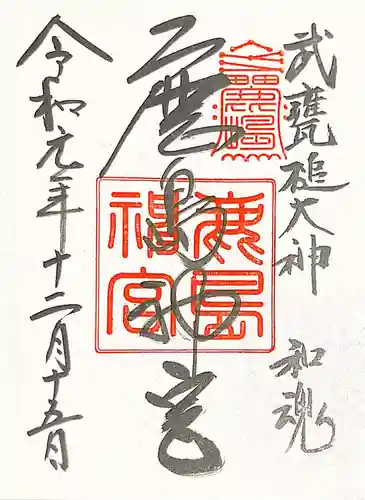 武甕槌大神
和魂
鹿島神宮
鹿島
神宮
令和元年十二月十五日